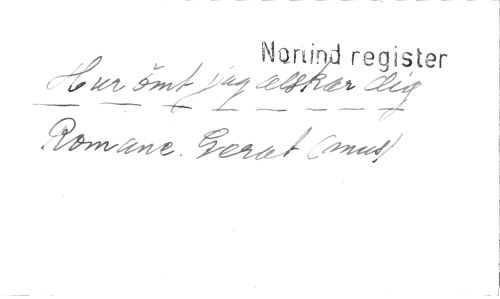 Norlind register
Hur ömt jag älskar dig
Romanc. Gerat (mus)